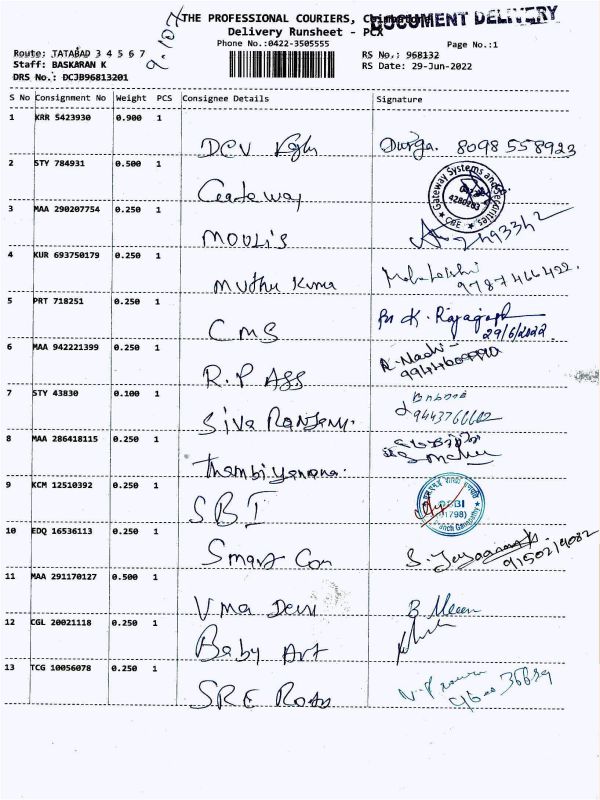 THE PROFESSIONAL COURIERS, Coimbatore
DOCUMENT DELIVERY
Delivery Runsheet - PCX
Phone No.:0422-3505555
Page No.:1
Route: TATABAD 3 4 5 6 7
RS No.: 968132
Staff: BASKARAN K
RS Date: 29-Jun-2022
DRS No.: DC3B96813201
S No Consignment No Weight PCS Consignee Details Signature
1 KRR 5423930 0.900 1
DCV Durga. 8098558923
2 STY 784931 0.500 1
Gateway Gateway Systems and Securities CBE
3 MAA 290207754 0.250 1
MOULI'S
4 KUR 693750179 0.250 1
Muthu Kumar 9787466422.
5 PRT 718251 0.250 1
CMS K. Rajagopal
29/6/2022.
6 MAA 942221399 0.250 1
R.P ASS
7 STY 43830 0.100 1
Siva Ranjani.
8 MAA 286418115 0.250 1
9 KCM 12510392 0.250 1
SBI
10 EDQ 16536113 0.250 1
Smart Con 9150219082
11 MAA 291170127 0.500 1
Uma Devi B Meen
12 CGL 20021118 0.250 1
Baby Art
13 TCG 10056078 0.250 1
SRE Roads